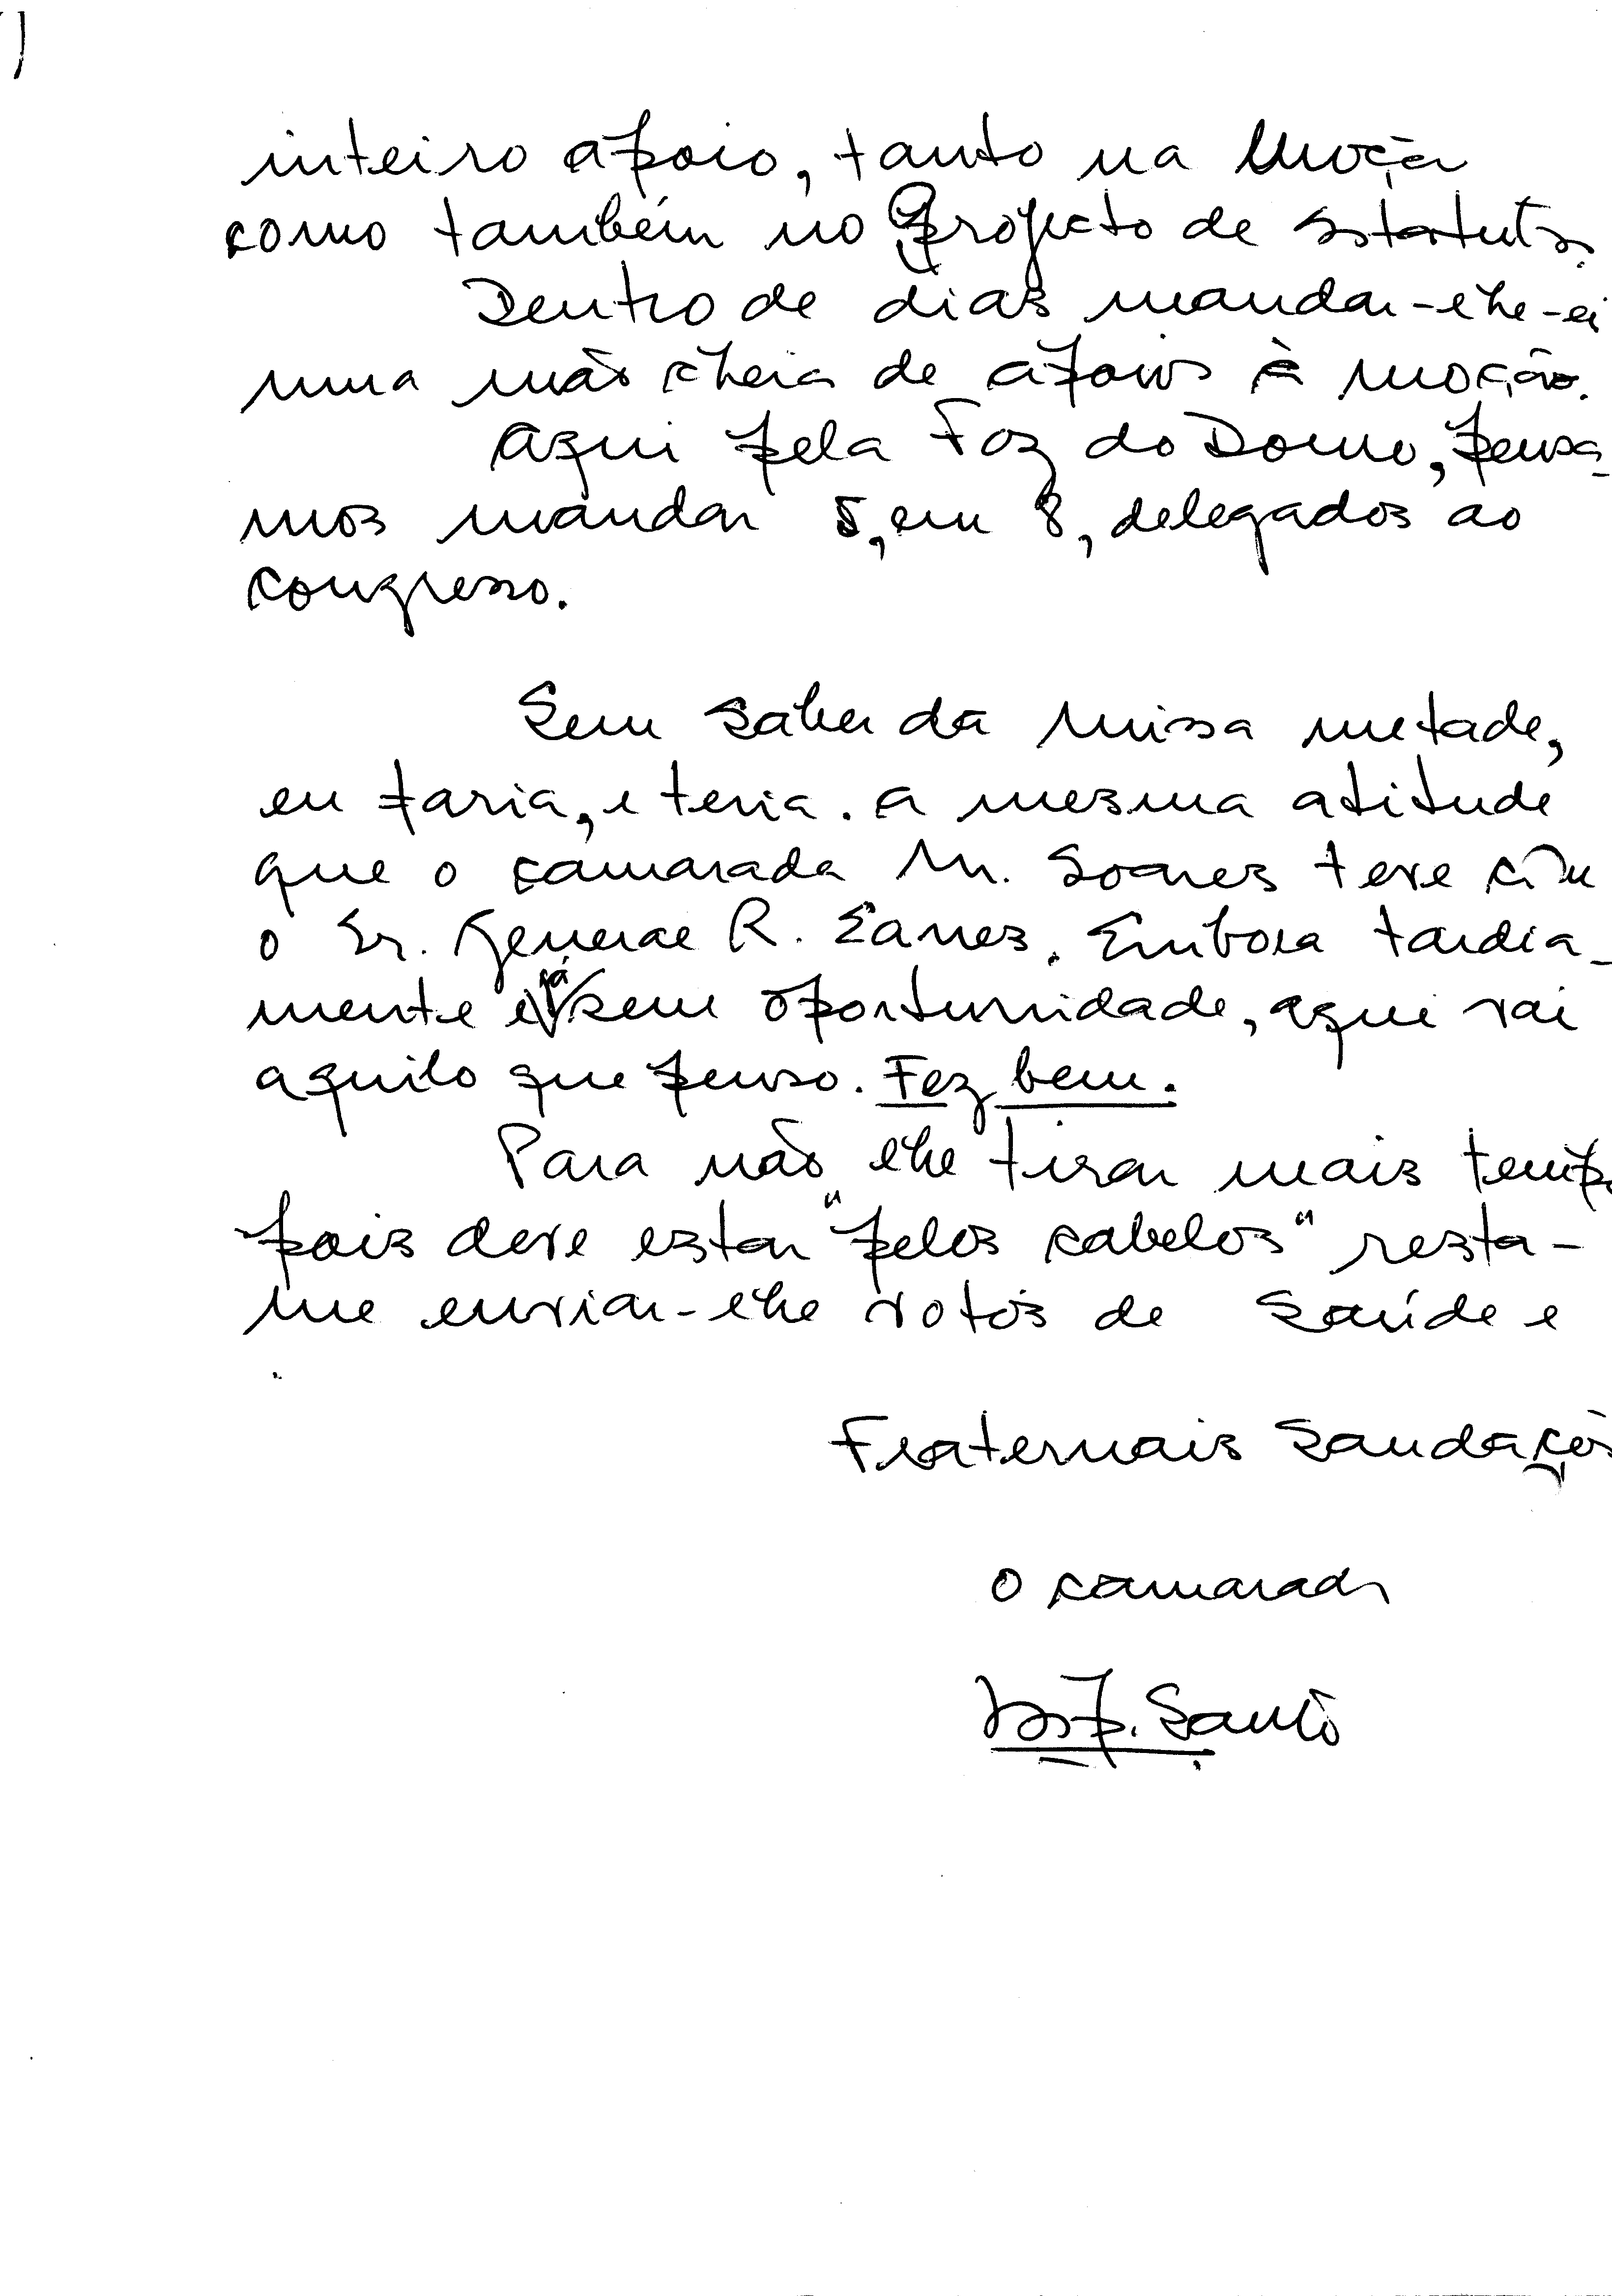 inteiro apoio, tanto na Moção
como também no Projecto de Estatutos.
Dentro de dias mandar-lhe-ei
uma mão cheia de apoios à moção.
Aqui pela Foz do Douro, pensa-
mos mandar 5, em 8, delegados ao
congresso.
Sem saber da missa metade,
eu faria, e teria. a mesma atitude
que o camarada M. Soares teve com
o Sr. General R. Eanes. Embora tardia-
mente e já sem oportunidade, aqui vai
aquilo que penso. Fez bem.
Para não lhe tirar mais tempo
pois deve estar "pelos cabelos" resta-
me enviar-lhe votos de Saúde e
Fraternais Saudações
O camarada
Santos